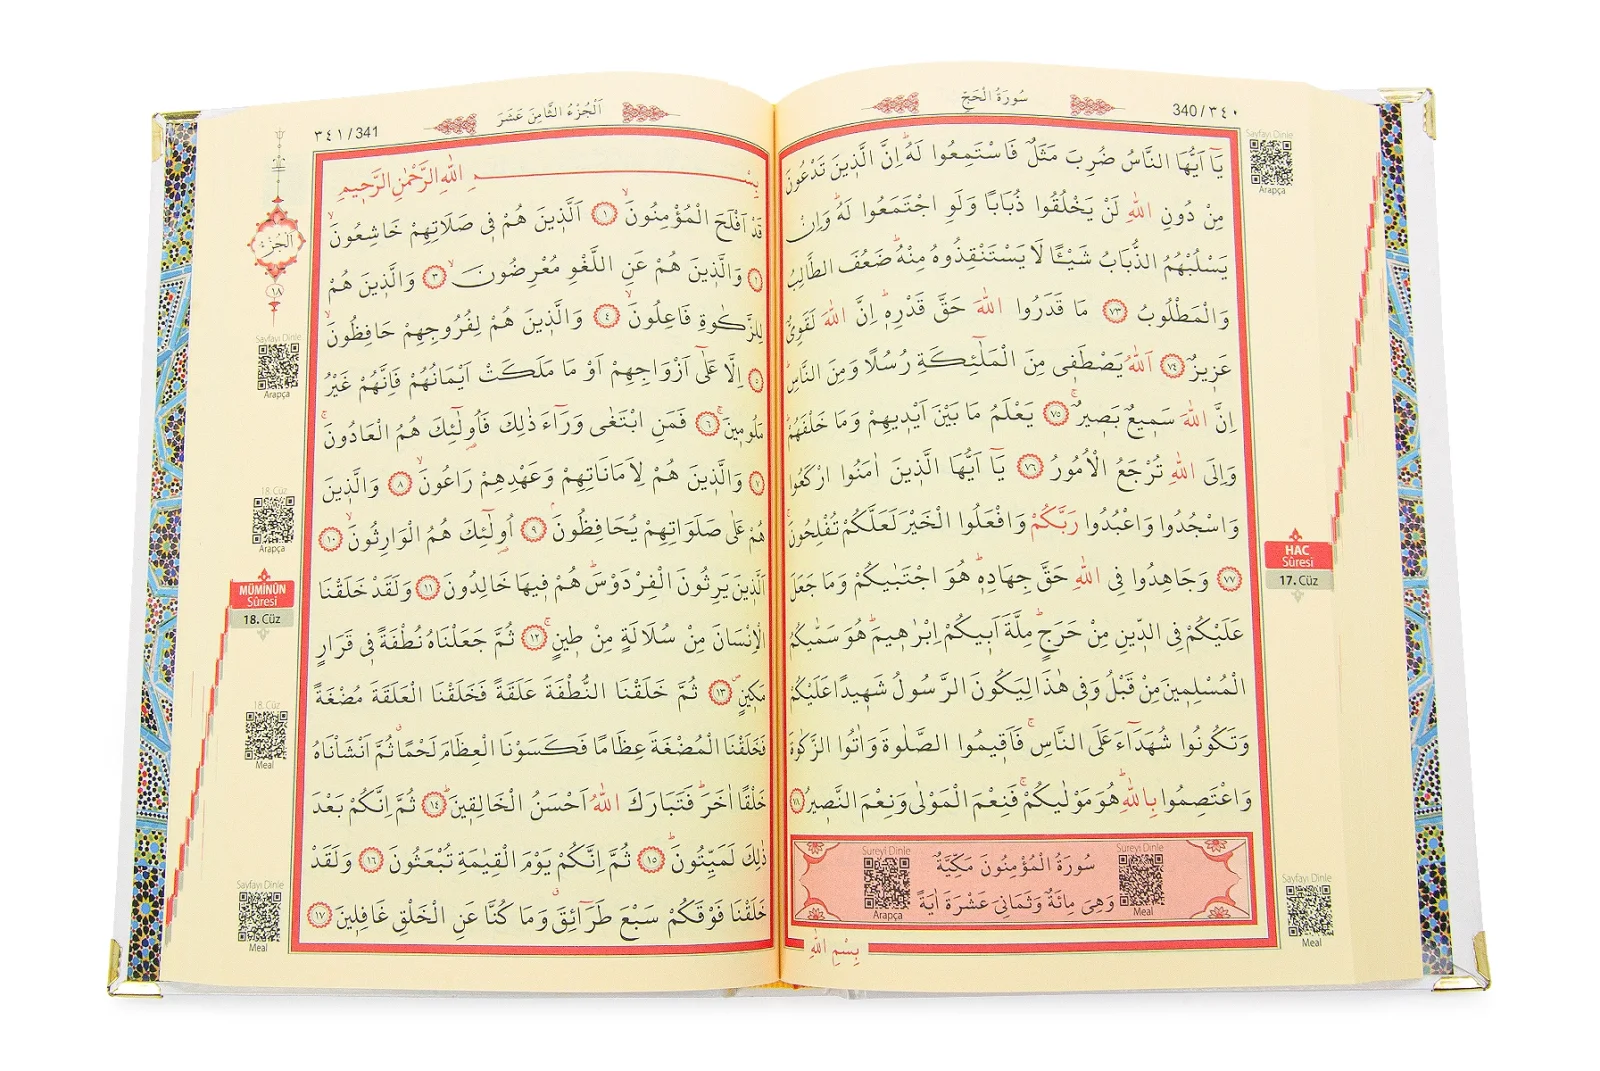 سُورَةُ الْحَجِّ
340 / ٣٤٠
Sayfayı Dinle
Arapça
يَٓا اَيُّهَا النَّاسُ ضُرِبَ مَثَلٌ فَاسْتَمِعُوا لَهُۜ اِنَّ الَّذ۪ينَ تَدْعُونَ
مِنْ دُونِ اللّٰهِ لَنْ يَخْلُقُوا ذُبَابًا وَلَوِ اجْتَمَعُوا لَهُۜ وَاِنْ
يَسْلُبْهُمُ الذُّبَابُ شَيْـًٔا لَا يَسْتَنْقِذُوهُ مِنْهُۜ ضَعُفَ الطَّالِبُ
وَالْمَطْلُوبُ ﴿٧٣﴾ مَا قَدَرُوا اللّٰهَ حَقَّ قَدْرِه۪ۜ اِنَّ اللّٰهَ لَقَوِيٌّ
عَز۪يزٌ ﴿٧٤﴾ اَللّٰهُ يَصْطَف۪ي مِنَ الْمَلٰٓئِكَةِ رُسُلًا وَمِنَ النَّاسِۜ
اِنَّ اللّٰهَ سَم۪يعٌ بَص۪يرٌۚ ﴿٧٥﴾ يَعْلَمُ مَا بَيْنَ اَيْد۪يهِمْ وَمَا خَلْفَهُمْۜ
وَاِلَى اللّٰهِ تُرْجَعُ الْاُمُورُ ﴿٧٦﴾ يَٓا اَيُّهَا الَّذ۪ينَ اٰمَنُوا ارْكَعُوا
وَاسْجُدُوا وَاعْبُدُوا رَبَّكُمْ وَافْعَلُوا الْخَيْرَ لَعَلَّكُمْ تُفْلِحُونَۚ
﴿٧٧﴾ وَجَاهِدُوا فِي اللّٰهِ حَقَّ جِهَادِه۪ۜ هُوَ اجْتَبٰيكُمْ وَمَا جَعَلَ
عَلَيْكُمْ فِي الدّ۪ينِ مِنْ حَرَجٍۜ مِلَّةَ اَب۪يكُمْ اِبْرٰه۪يمَۜ هُوَ سَمّٰيكُمُ
الْمُسْلِم۪ينَ مِنْ قَبْلُ وَف۪ي هٰذَا لِيَكُونَ الرَّسُولُ شَه۪يدًا عَلَيْكُمْ
وَتَكُونُوا شُهَدَٓاءَ عَلَى النَّاسِۚ فَاَق۪يمُوا الصَّلٰوةَ وَاٰتُوا الزَّكٰوةَ
وَاعْتَصِمُوا بِاللّٰهِۜ هُوَ مَوْلٰيكُمْۚ فَنِعْمَ الْمَوْلٰى وَنِعْمَ النَّص۪يرُ ﴿٧٨﴾
HAC
Sûresi
17. Cüz
Sureyi Dinle
Meal
سُورَةُ الْمُؤْمِنُونَ مَكِّيَّةٌ
وَهِيَ مِائَةٌ وَثَمَانِيَ عَشْرَةَ اٰيَةً
Sureyi Dinle
Arapça
Sayfayı Dinle
Meal
بِسْمِ اللّٰهِ
اَلْجُزْءُ الثَّامِنَ عَشَرَ
٣٤١ / 341
بِسْمِ اللّٰهِ الرَّحْمٰنِ الرَّح۪يمِ
قَدْ اَفْلَحَ الْمُؤْمِنُونَۙ ﴿١﴾ اَلَّذ۪ينَ هُمْ ف۪ي صَلَاتِهِمْ خَاشِعُونَۙ
﴿٢﴾ وَالَّذ۪ينَ هُمْ عَنِ اللَّغْوِ مُعْرِضُونَۙ ﴿٣﴾ وَالَّذ۪ينَ هُمْ
لِلزَّكٰوةِ فَاعِلُونَۙ ﴿٤﴾ وَالَّذ۪ينَ هُمْ لِفُرُوجِهِمْ حَافِظُونَۙ
﴿٥﴾ اِلَّا عَلٰٓى اَزْوَاجِهِمْ اَوْ مَا مَلَكَتْ اَيْمَانُهُمْ فَاِنَّهُمْ غَيْرُ
مَلُوم۪ينَۚ ﴿٦﴾ فَمَنِ ابْتَغٰى وَرَٓاءَ ذٰلِكَ فَاُو۬لٰٓئِكَ هُمُ الْعَادُونَۚ
﴿٧﴾ وَالَّذ۪ينَ هُمْ لِاَمَانَاتِهِمْ وَعَهْدِهِمْ رَاعُونَۙ ﴿٨﴾ وَالَّذ۪ينَ
هُمْ عَلٰى صَلَوَاتِهِمْ يُحَافِظُونَۢ ﴿٩﴾ اُو۬لٰٓئِكَ هُمُ الْوَارِثُونَۙ ﴿١٠﴾
اَلَّذ۪ينَ يَرِثُونَ الْفِرْدَوْسَۜ هُمْ ف۪يهَا خَالِدُونَ ﴿١١﴾ وَلَقَدْ خَلَقْنَا
الْاِنْسَانَ مِنْ سُلَالَةٍ مِنْ ط۪ينٍۚ ﴿١٢﴾ ثُمَّ جَعَلْنَاهُ نُطْفَةً ف۪ي قَرَارٍ
مَك۪ينٍۖ ﴿١٣﴾ ثُمَّ خَلَقْنَا النُّطْفَةَ عَلَقَةً فَخَلَقْنَا الْعَلَقَةَ مُضْغَةً
فَخَلَقْنَا الْمُضْغَةَ عِظَامًا فَكَسَوْنَا الْعِظَامَ لَحْمًاۗ ثُمَّ اَنْشَأْنَاهُ
خَلْقًا اٰخَرَۜ فَتَبَارَكَ اللّٰهُ اَحْسَنُ الْخَالِق۪ينَۜ ﴿١٤﴾ ثُمَّ اِنَّكُمْ بَعْدَ
ذٰلِكَ لَمَيِّتُونَۜ ﴿١٥﴾ ثُمَّ اِنَّكُمْ يَوْمَ الْقِيٰمَةِ تُبْعَثُونَ ﴿١٦﴾ وَلَقَدْ
خَلَقْنَا فَوْقَكُمْ سَبْعَ طَرَٓائِقَۗ وَمَا كُنَّا عَنِ الْخَلْقِ غَافِل۪ينَ ﴿١٧﴾
اَلْجُزْءُ
١٨
Sayfayı Dinle
Arapça
18. Cüz
Arapça
MÜMİNÛN
Sûresi
18. Cüz
18. Cüz
Meal
Sayfayı Dinle
Meal